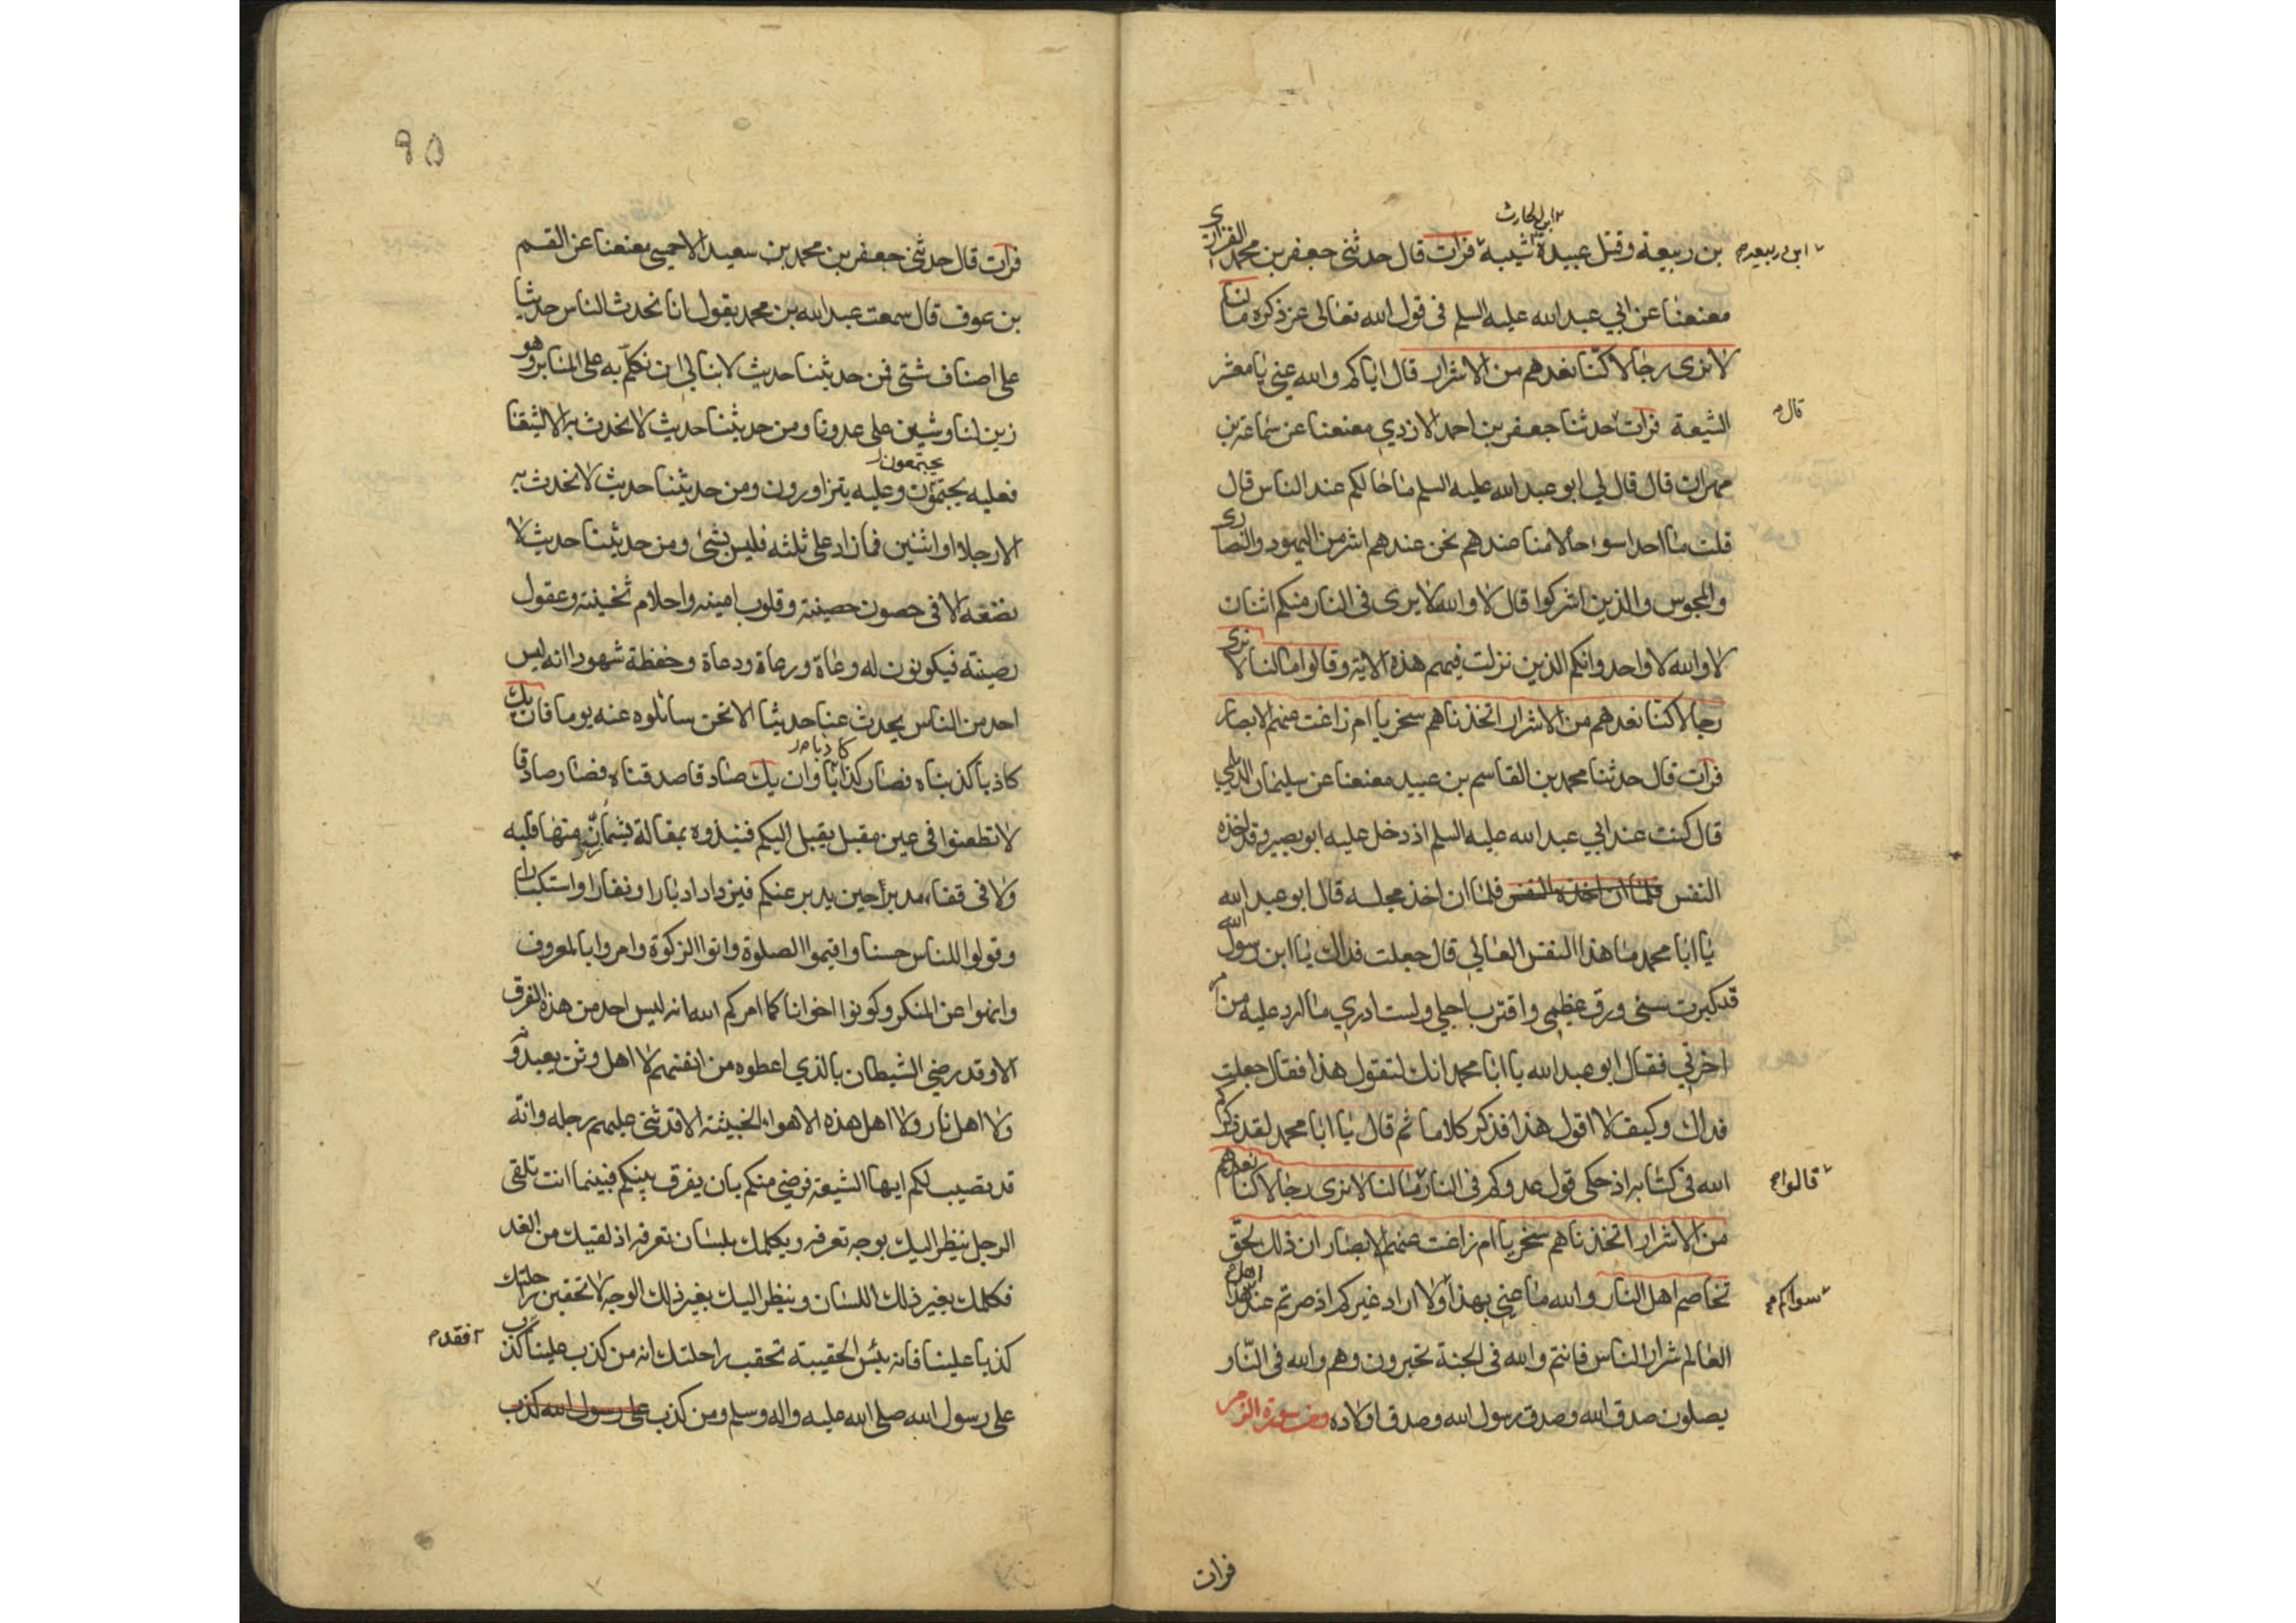 ابن الحارث
بن ربيعة وقتل عبيدة شيبة فرات قال حدثني جعفر بن محمد الفزاري
ابن ربيعه م
معنعنا عن ابي عبد الله عليه السلم في قول الله تعالى عز ذكره مالنا
لا نرى رجالا كنا نعدهم من الاشرار قال اياكم والله عنى يا معشر
الشيعة فرات حدثنا جعفر بن احمد الازدي معنعنا عن سماعة بن
قال م
مهران قال قال لي ابو عبد الله عليه السلم ما حالكم عند الناس قال
قلت ما احد اسوا حالا منا عندهم نحن عندهم اشر من اليهود والنصارى
والمجوس والذين اشركوا قال لا والله لا يرى في النار منكم اثنان
لا والله لا واحد وانكم الذين نزلت فيهم هذه الاية وقالوا مالنا لا نرى
رجالا كنا نعدهم من الاشرار اتخذناهم سخريا ام زاغت عنهم الابصار
فرات قال حدثنا محمد بن القاسم بن عبيد معنعنا عن سليمان الديلمي
قال كنت عند ابي عبد الله عليه السلم اذ دخل عليه ابو بصير وقد اخذه
النفس فلما ان اخذه النفس فلما ان اخذ مجلسه قال ابو عبد الله
يا ابا محمد ما هذا النفس العالي قال جعلت فداك يا ابن رسول الله
قد كبرت سني ورق عظمي واقترب اجلي ولست ادري ما ارد عليه من امر
اخرتي فقال ابو عبد الله يا ابا محمد انك لتقول هذا فقال جعلت
فداك وكيف لا اقول هذا فذكر كلاما ثم قال يا ابا محمد لقد ذكركم
الله في كتابه اذ حكى قول عدوكم في النار مالنا لا نرى رجالا كنا نعدهم
قالوا م
من الاشرار اتخذناهم سخريا ام زاغت عنهم الابصار ان ذلك لحق
تخاصم اهل النار والله ما عنى بهذا ولا اراد غيركم اذ صرتم عند اهل هذا
سواكم م
العالم شرار الناس فانتم والله في الجنة تحبرون وهم والله في النار
يصلون صدق الله وصدق رسول الله وصدق اولاده ومن سورة الزمر
فرات
٩٥
فرات قال حدثني جعفر بن محمد بن سعيد الاحمسي معنعنا عن القسم
بن عوف قال سمعت عبد الله بن محمد يقول انا نحدث الناس حديثا
على اصناف شتى فمن حديثنا حديث لا نبالي ان نكلم به على المنابر وهو
زين لنا وشين على عدونا ومن حديثنا حديث لا نحدث به الا لشيعتنا
يجتمعون
فعليه يجتمعون وعليه يتزاورون ومن حديثنا حديث لا نحدث به
الا رجلا او اثنين فما زاد على ثلثه فليس بشئ ومن حديثنا حديث لا
نضعه الا في حصون حصينة وقلوب امينه واحلام ثخينة وعقول
رصينة فيكونون له وعاة ورعاة ودعاة وحفظة شهودا انه ليس
احد من الناس يحدث عنا حديثا الا نحن سائلوه عنه يوما فان يك
كاذبا
كاذبا كذبناه فصار كذابا وان يك صادقا صدقناه فصار صادقا
لا تطعنوا في عين مقبل يقبل اليكم فتبذوه بمقالة يشمأز منها قلبه
ولا في قفاء مدبر حين يدبر عنكم فيزداد ادبارا ونفارا واستكبارا
وقولوا للناس حسنا واقيموا الصلوة واتوا الزكوة وامروا بالمعروف
وانهوا عن المنكر وكونوا اخوانا كما امركم الله انه ليس احد من هذه الفرق
الا وقد رضي الشيطان بالذي اعطوه من انفسهم لا اهل وثن يعبدونه
ولا اهل نار ولا اهل هذه الاهواء الخبيثة الا قد ثنى عليهم رجله وانه
قد نصب لكم ايها الشيعة فرضي منكم بان يفرق بينكم فبينما انت تلقى
الرجل ينظر اليك بوجه تعرفه ويكلمك بلسان تعرفه اذ لقيك من الغد
فكلمك بغير ذلك اللسان وينظر اليك بغير ذلك الوجه لا تحقبن راحلتك
كذبا علينا فانه بئس الحقيبة تحقب راحلتك انه من كذب علينا كذب
فقد م
على رسول الله صلى الله عليه واله وسلم ومن كذب على رسول الله كذب